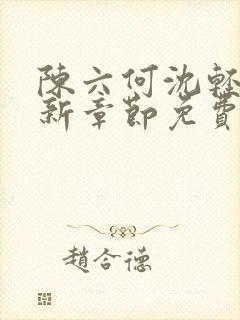 陳六何沈輕
新章節免費
趙合德